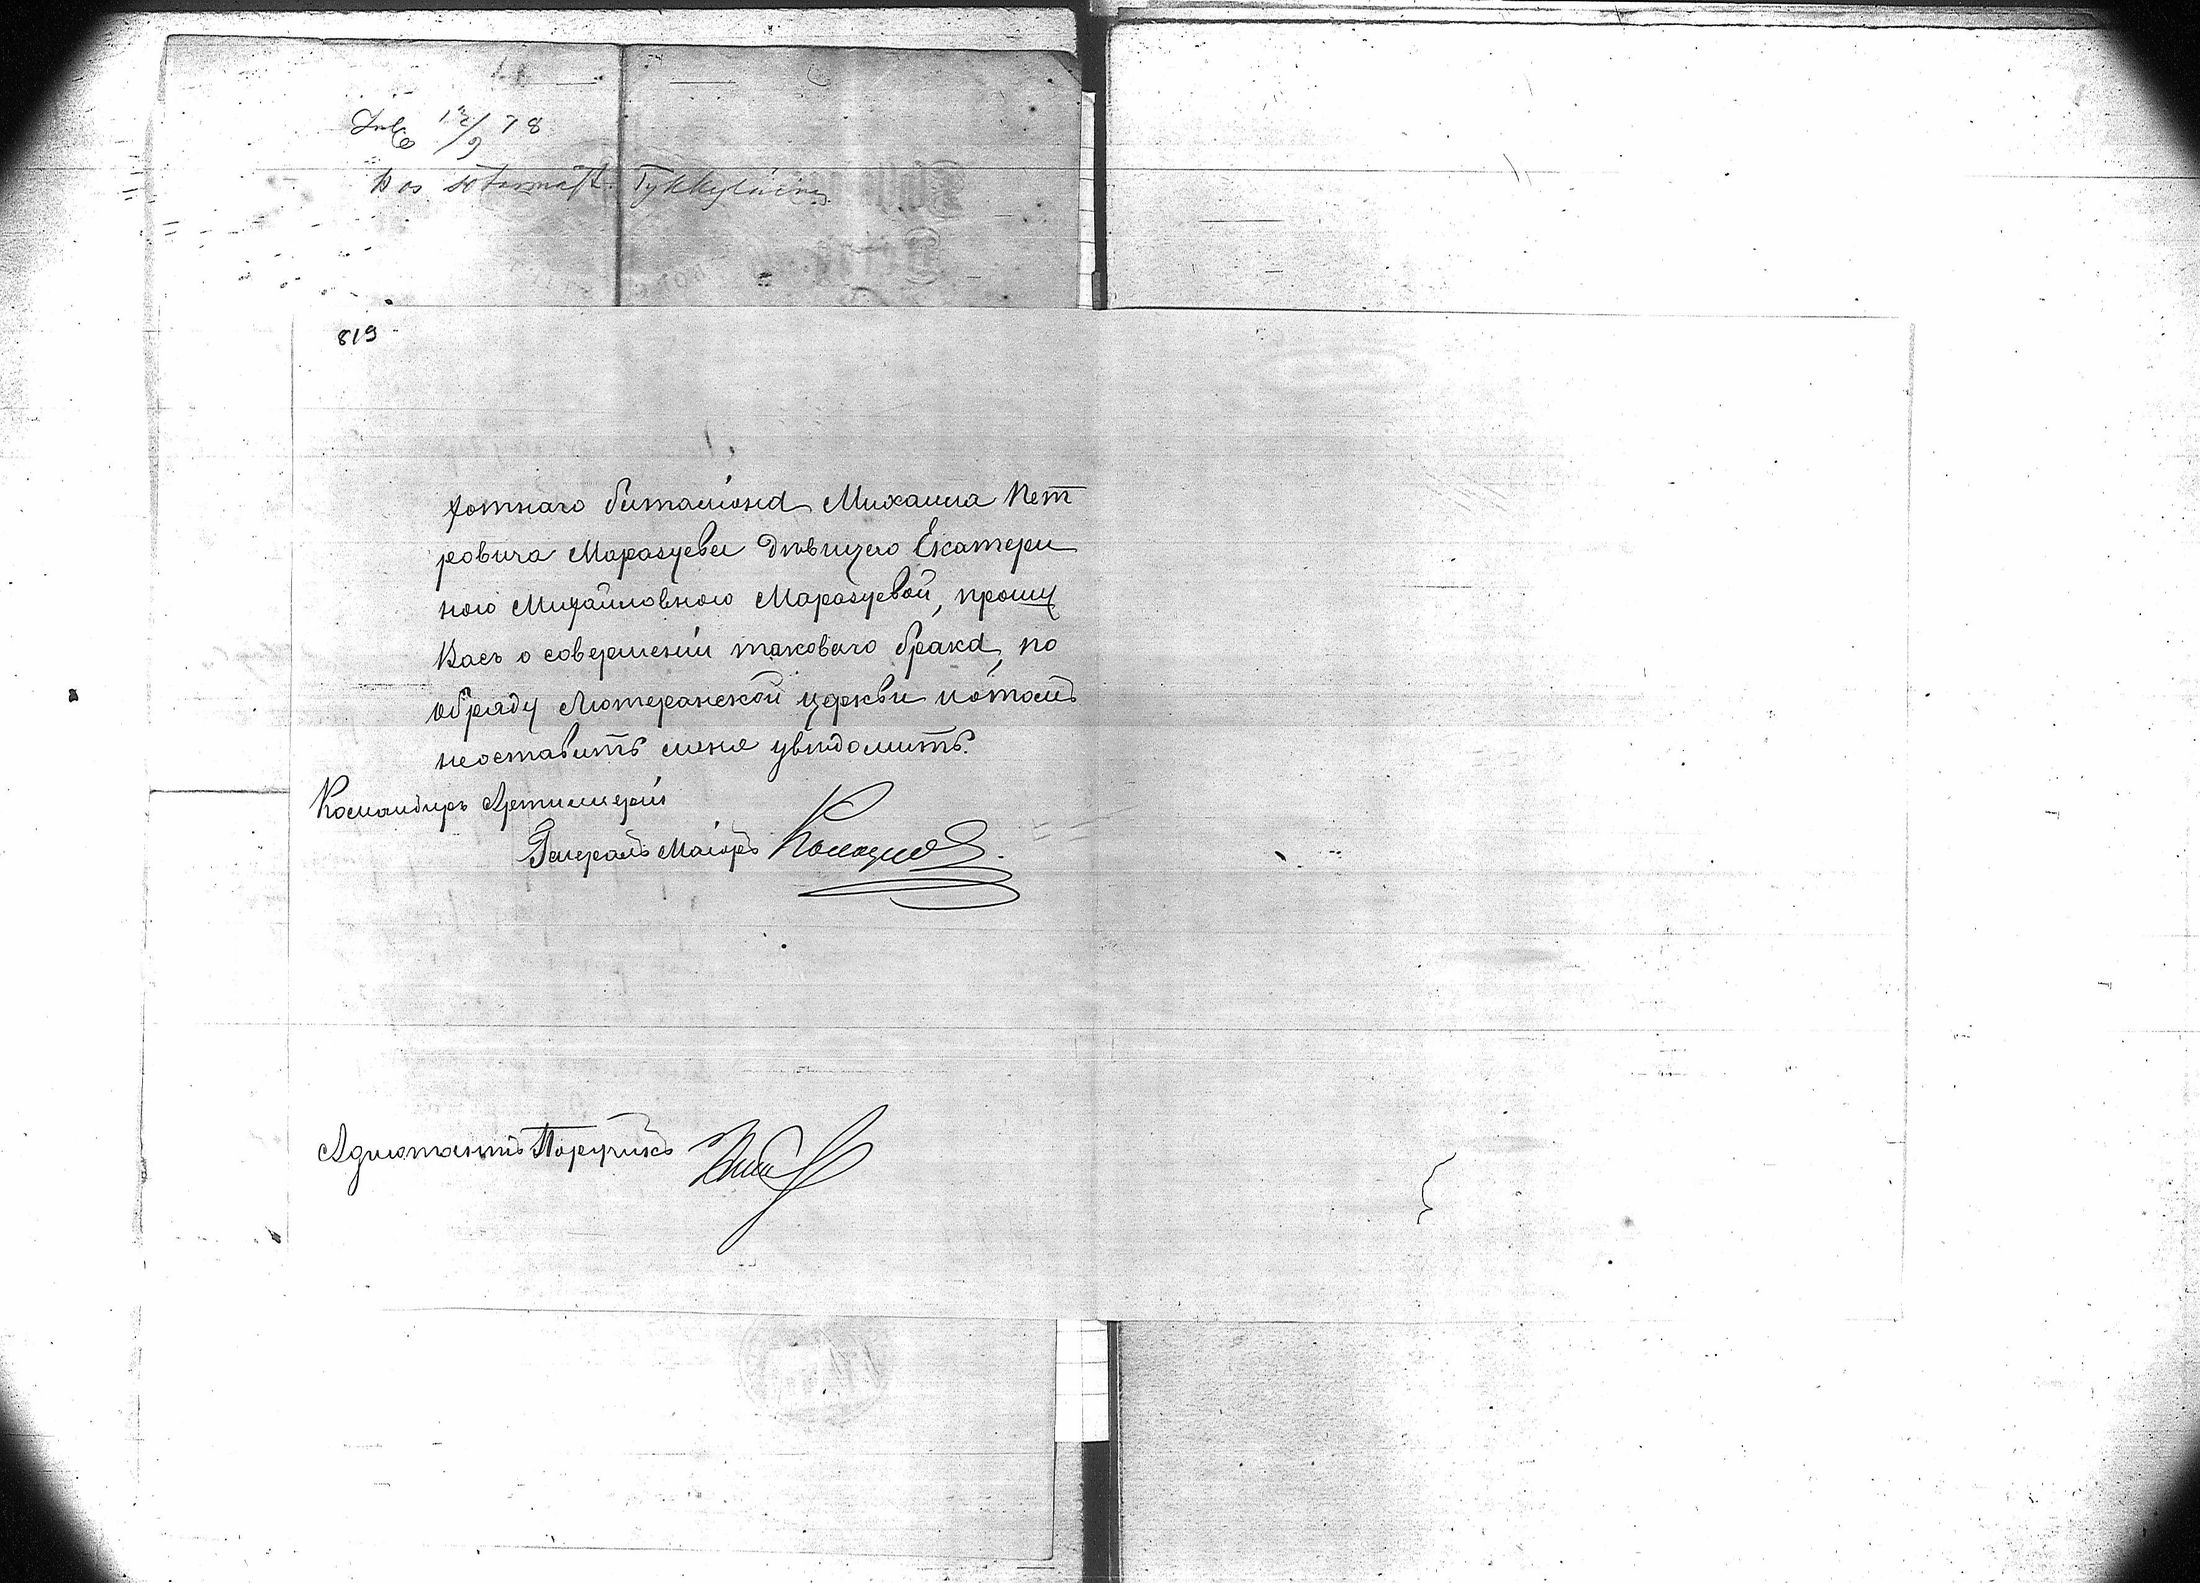 Inl 12/9 78
Tykkyläinen
819
хотнаго баталіона Михаила Пет
ровича Марагуева дѣвицею Екатери
ною Михайловною Марагуевой, прошу
Васъ о совершеніи таковаго брака, по
обряду Лютеранской церкви и о томъ
неоставить меня увѣдомить.
Командиръ Артиллеріи
Генералъ Маіоръ
Адъютантъ Поручикъ